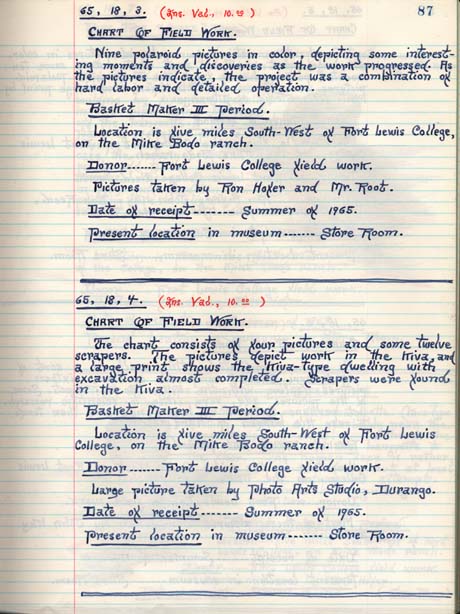 87
65, 18, 3. (Ins. Val., 10.00)
CHART OF FIELD WORK.
Nine polaroid pictures in color, depicting some interest-
ing moments and discoveries as the work progressed. As
the pictures indicate, the project was a combination of
hard labor and detailed operation.
Basket Maker III Period.
Location is five miles South-West of Fort Lewis College,
on the Mike Bodo ranch.
Donor------- Fort Lewis College field work.
Pictures taken by Ron Hofer and Mr. Root.
Date of receipt------- Summer of 1965.
Present location in museum------ Store Room.
65, 18, 4. (Ins. Val., 10.00)
CHART OF FIELD WORK.
The chart consists of four pictures and some twelve
scrapers. The pictures depict work in the Kiva, and
a large print shows the Kiva-type dwelling with
excavation almost completed. Scrapers were found
in the Kiva.
Basket Maker III Period.
Location is five miles South-West of Fort Lewis
College, on the Mike Bodo ranch.
Donor------- Fort Lewis College field work.
Large picture taken by Photo Arts Studio, Durango.
Date of receipt------- Summer of 1965.
Present location in museum------ Store Room.